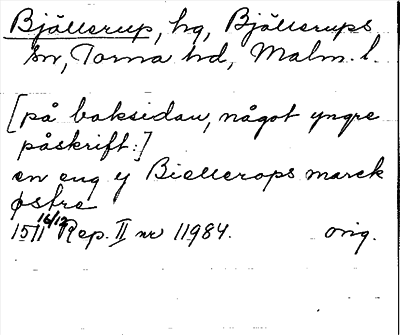 Bjällerup, hg, Bjällerups
sn, Torna hd, Malm. l.
[på baksidan, något yngre
påskrift:]
en eng y Biellerops marck
østre
1511 16/12 Rep. II nr 11984. orig.